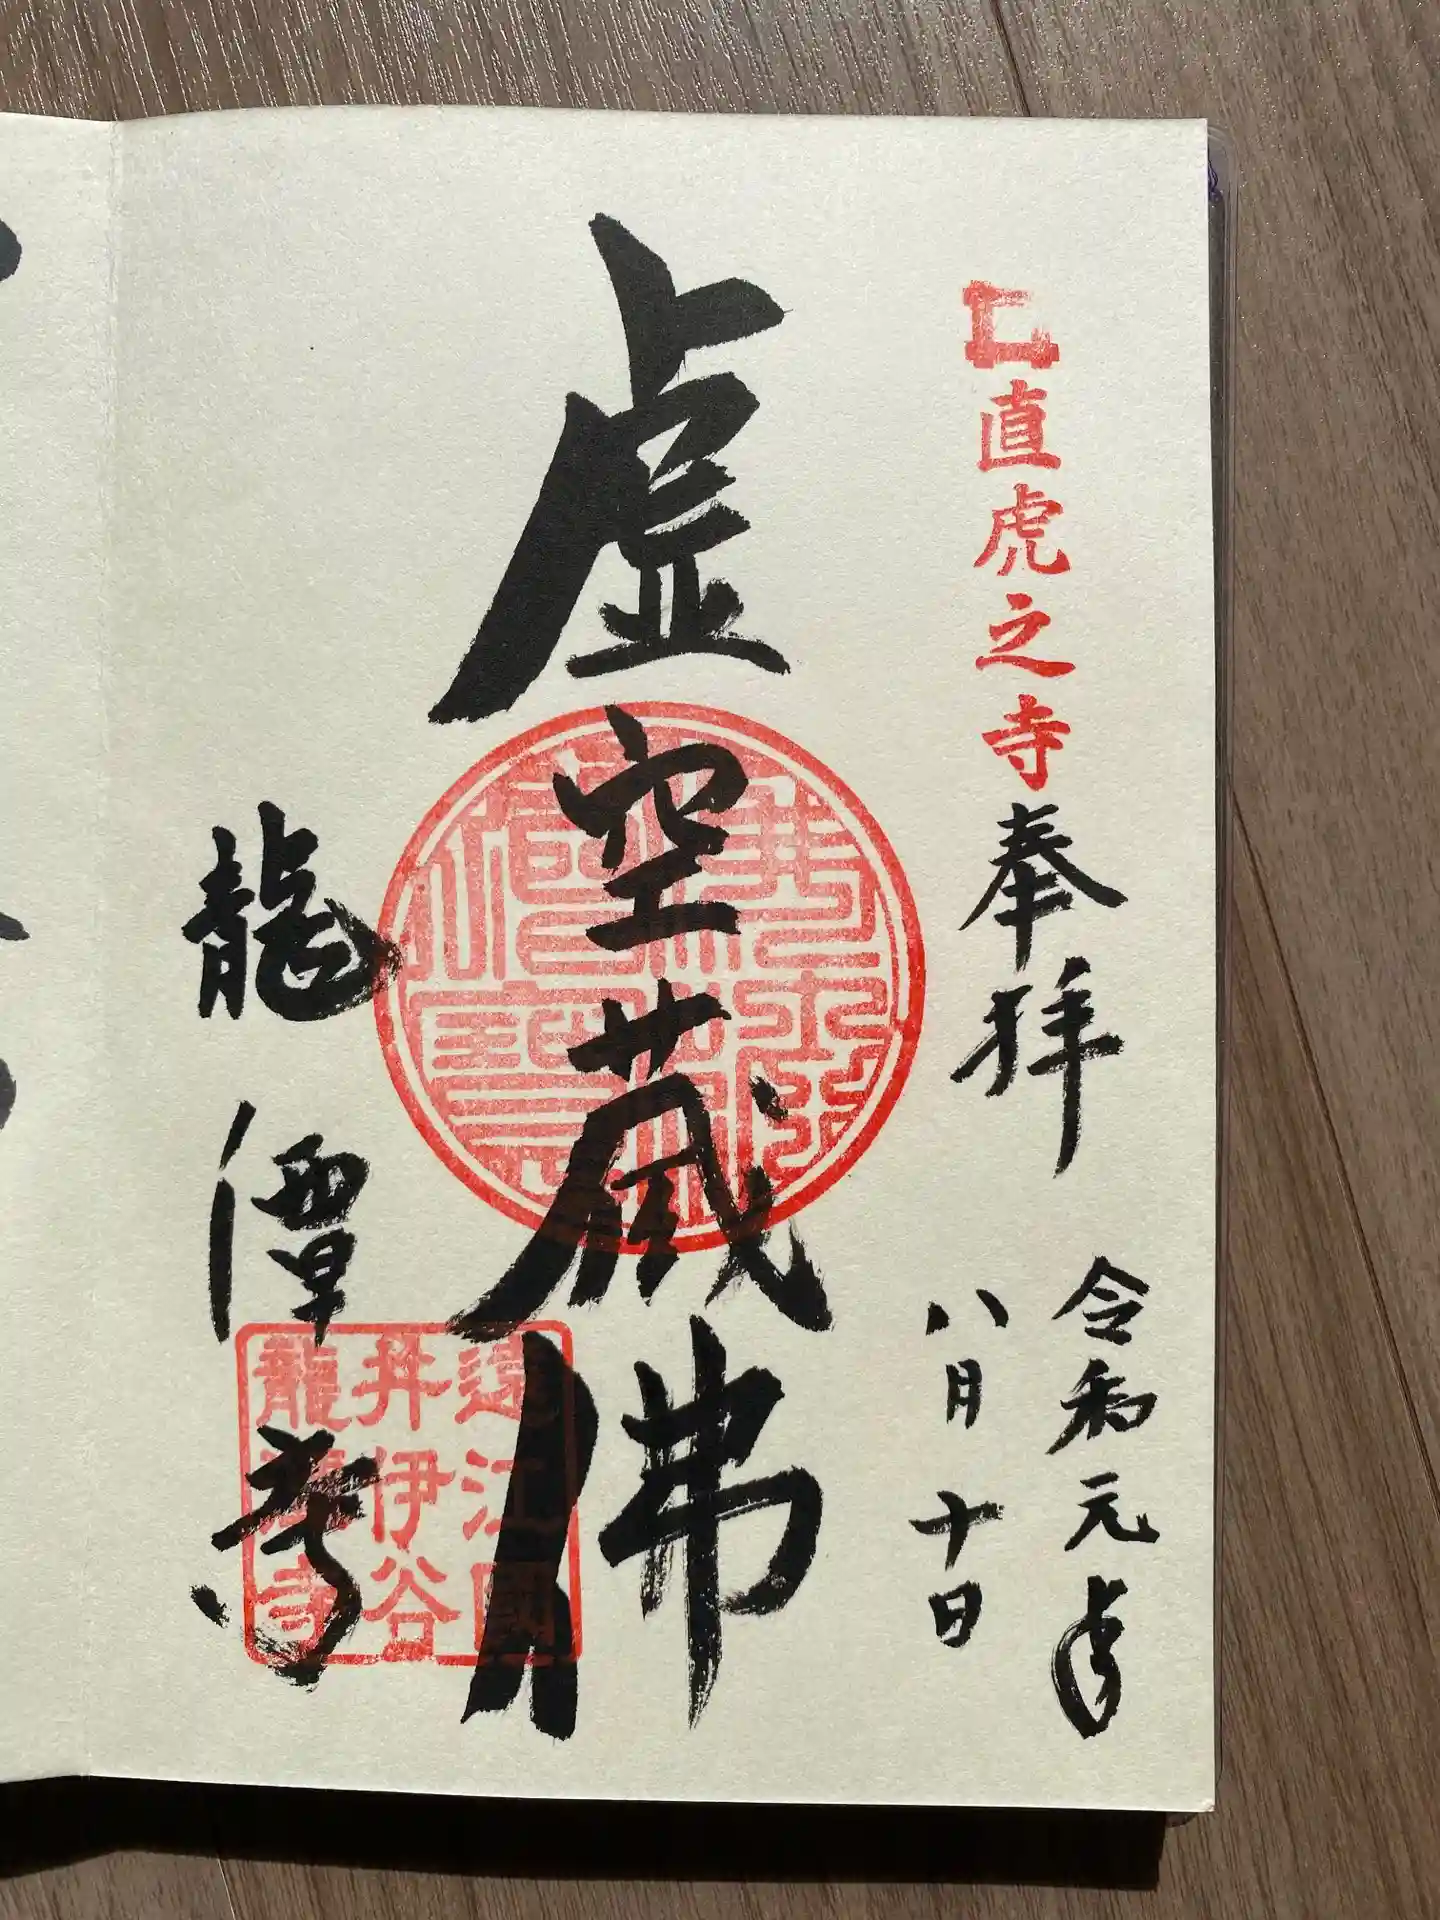 直虎之寺
奉拝
令和元年
八月十日
虚空蔵佛
龍潭寺
遠江國
井伊谷
龍潭寺